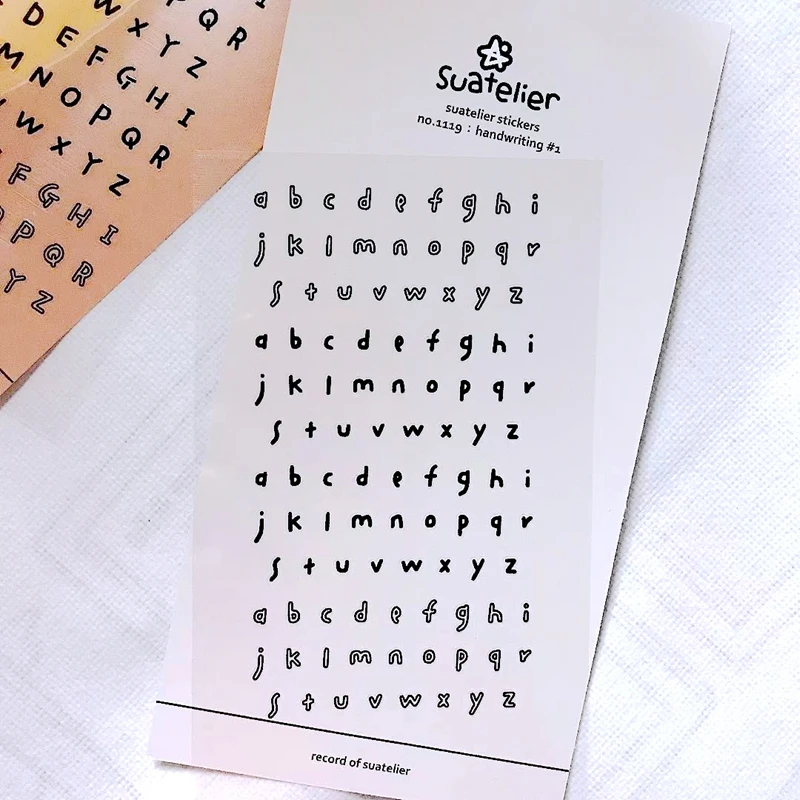 Suatelier
suatelier stickers
no.1119 : handwriting #1
a b c d e f g h i
j k l m n o p q r
s t u v w x y z
a b c d e f g h i
j k l m n o p q r
s t u v w x y z
a b c d e f g h i
j k l m n o p q r
s t u v w x y z
a b c d e f g h i
j k l m n o p q r
s t u v w x y z
record of suatelier
Q R
W X Y Z
D E F G H I
M N O P Q R
W X Y Z
F G H I
P Q R
Y Z